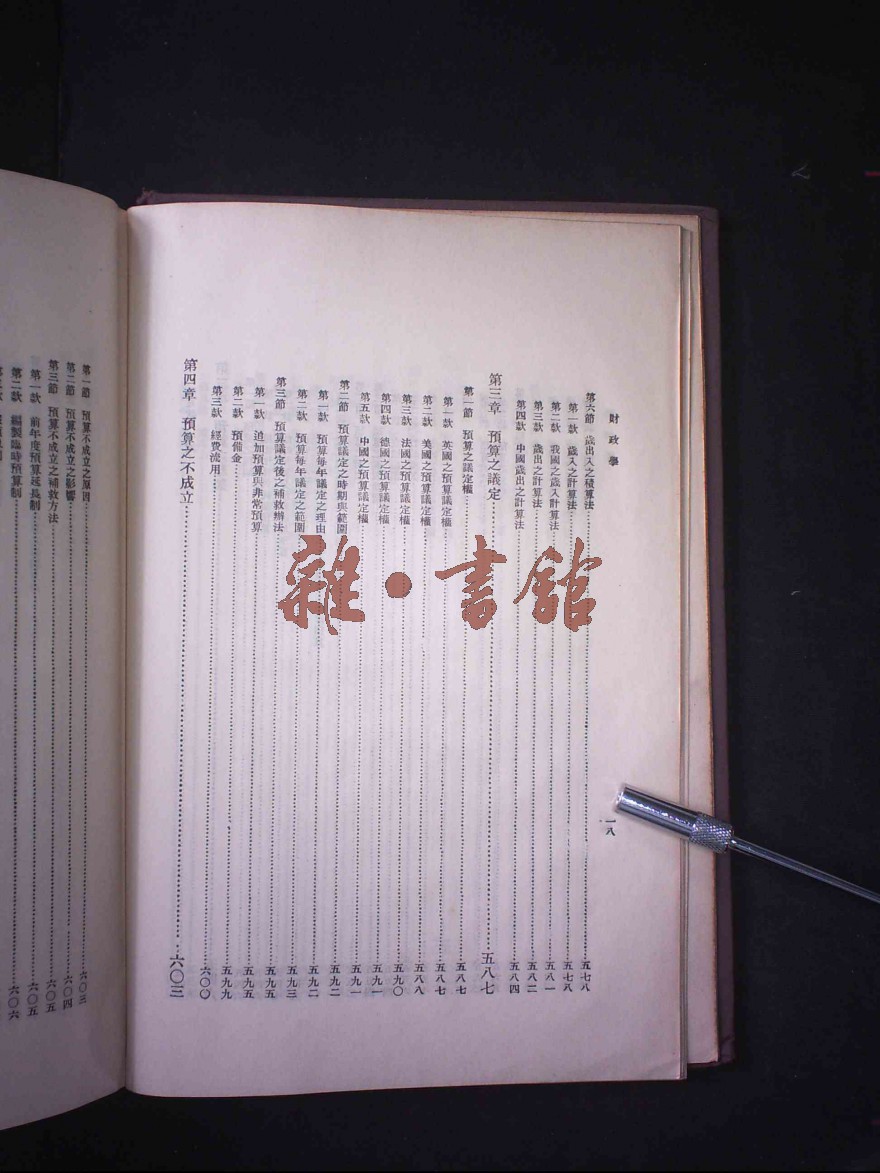 財政學
一八
第六節 歲出入之積算法 五七八
第一款 歲入之計算法 五七八
第二款 我國之歲入計算法 五八一
第三款 歲出之計算法 五八二
第四款 中國歲出之計算法 五八四
第三章 預算之議定 五八七
第一節 預算之議定權 五八七
第一款 英國之預算議定權 五八七
第二款 美國之預算議定權 五八八
第三款 法國之預算議定權 五九〇
第四款 德國之預算議定權 五九一
第五款 中國之預算議定權 五九一
第二節 預算議定之時期與範圍 五九二
第一款 預算每年議定之理由 五九二
第二款 預算每年議定之範圍 五九三
第三節 預算議定後之補救辦法 五九五
第一款 追加預算與非常預算 五九五
第二款 預備金 五九九
第三款 經費流用 六〇〇
第四章 預算之不成立 六〇三
第一節 預算不成立之原因 六〇三
第二節 預算不成立之影響 六〇四
第三節 預算不成立之補救方法 六〇五
第一款 前年度預算延長制 六〇五
第二款 編製臨時預算制 六〇六
雜·書館